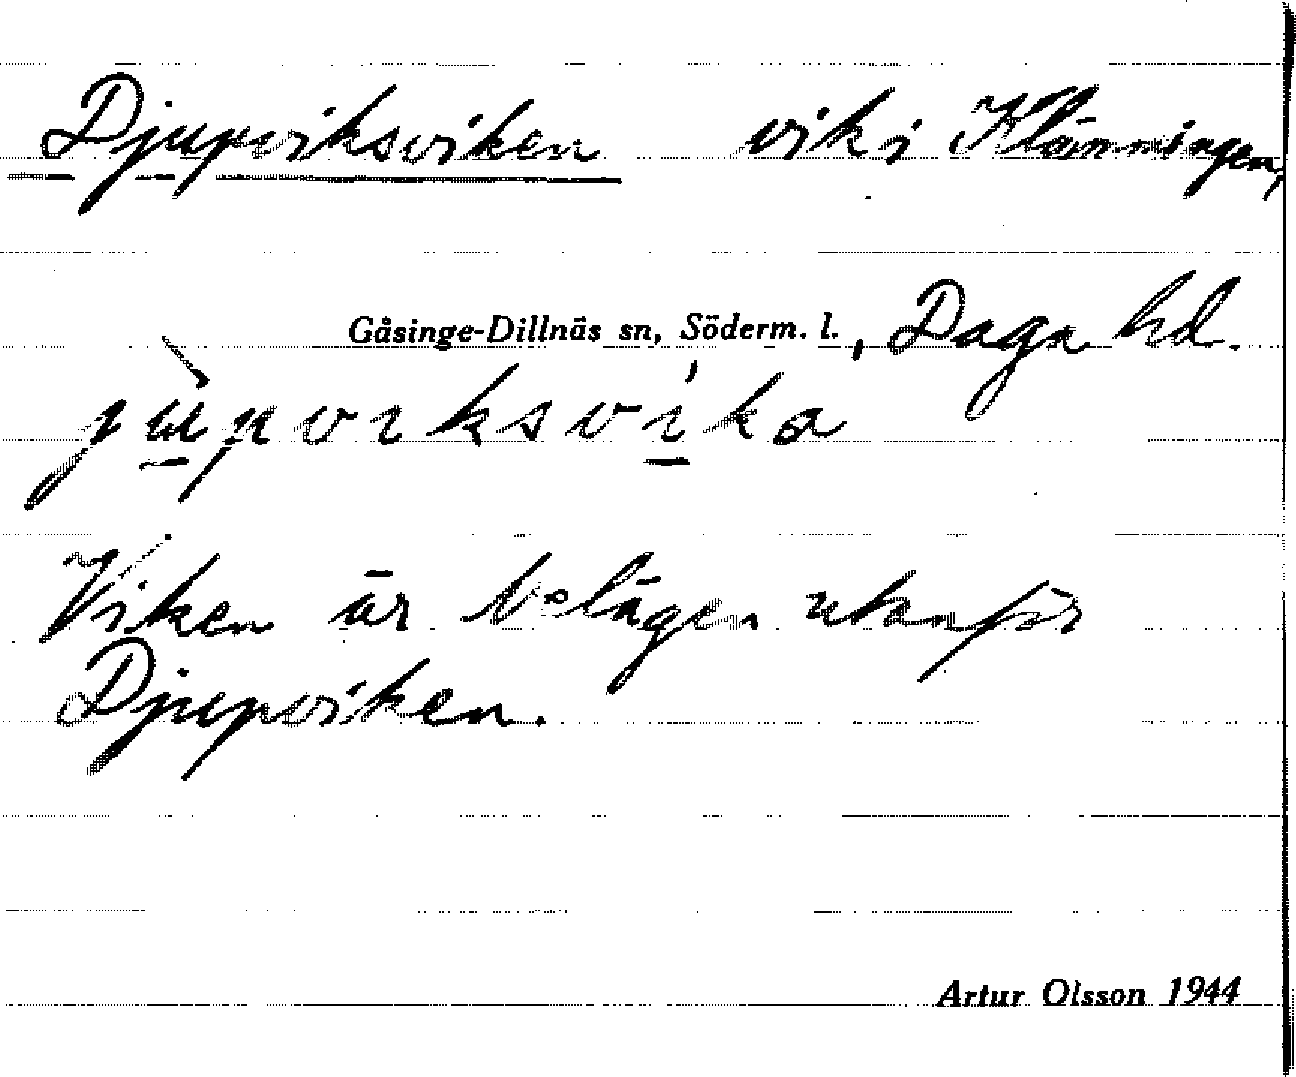 Djupviksviken vik i Klämmingen,
Gåsinge-Dillnäs sn, Söderm. l., Daga hd.
jùpviksvíka
Viken är belägen utanför
Djupviken.
Artur Olsson 1944